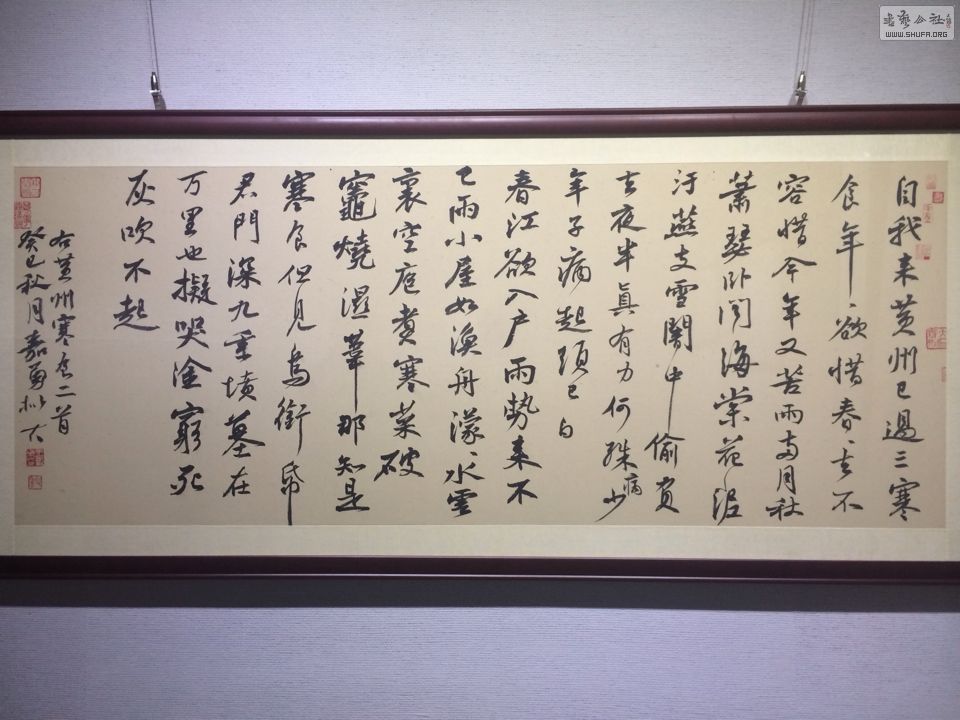 自我来黄州已過三寒
食年〻欲惜春〻去不
容惜今年又苦雨两月秋
萧瑟卧闻海棠花泥
汙燕支雪闇中偷負
去夜半真有力何殊病少
年子病起頭已白
春江欲入户雨勢来不
已雨小屋如漁舟濛〻水雲
裏空庖煮寒菜破
竈燒濕葦那知是
寒食但見烏銜帋
君門深九重墳墓在
万里也擬哭塗窮死
灰吹不起
右黄州寒食二首
癸巳秋月嘉
書艺公社
WWW.SHUFA.ORG